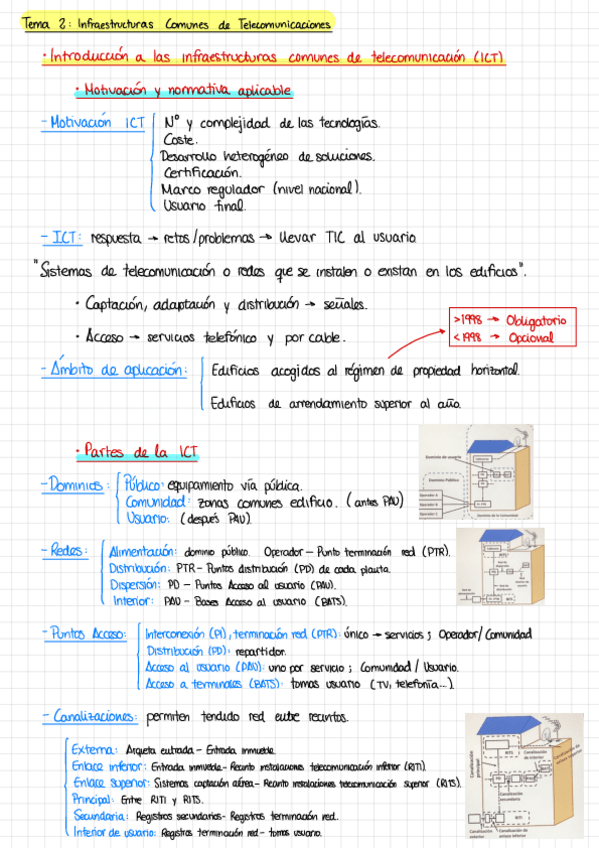 Tema 2: Infraestructuras Comunes de Telecomunicaciones
· Introducción a las infraestructuras comunes de telecomunicación (ICT)
· Motivación y normativa aplicable
- Motivación ICT
Nº y complejidad de las tecnologías.
Coste.
Desarrollo heterogéneo de soluciones.
Certificación.
Marco regulador (nivel nacional).
Usuario final.
- ICT: respuesta → retos/problemas → llevar TIC al usuario
"Sistemas de telecomunicación o redes que se instalen o existan en los edificios".
· Captación, adaptación y distribución → señales.
· Acceso → servicios telefónico y por cable.
>1998 → Obligatorio
<1998 → Opcional
- Ámbito de aplicación:
Edificios acogidos al régimen de propiedad horizontal.
Edificios de arrendamiento superior al año.
· Partes de la ICT
- Dominios:
Público: equipamiento vía pública.
Comunidad: zonas comunes edificio. (antes PAU)
Usuario: (después PAU).
Dominio de usuario
Dominio Público
Dominio de la Comunidad
- Redes:
Alimentación: dominio público. Operador - Punto terminación red (PTR).
Distribución: PTR - Puntos distribución (PD) de cada planta.
Dispersión: PD - Puntos Acceso al usuario (PAU).
Interior: PAU - Bases Acceso al usuario (BATS).
- Puntos Acceso:
Interconexión (PI), terminación red (PTR): único → servicios ; Operador/Comunidad
Distribución (PD): repartidor.
Acceso al usuario (PAU): uno por servicio ; Comunidad / Usuario.
Acceso a terminales (BATS): tomas usuario (TV, telefonía...).
- Canalizaciones: permiten tendido red entre recintos.
Externa: Arqueta entrada - Entrada inmueble.
Enlace inferior: Entrada inmueble - Recinto instalaciones telecomunicación inferior (RITI)
Enlace superior: Sistemas captación aérea - Recinto instalaciones telecomunicación superior (RITS).
Principal: Entre RITI y RITS.
Secundaria: Registros secundarios - Registros terminación red.
Interior de usuario: Registros terminación red - tomas usuario.
RITS
Canalización principal
Canalización de interior
Canalización de enlace superior
Canalización secundaria
RITI
Canalización exterior
Canalización de enlace inferior